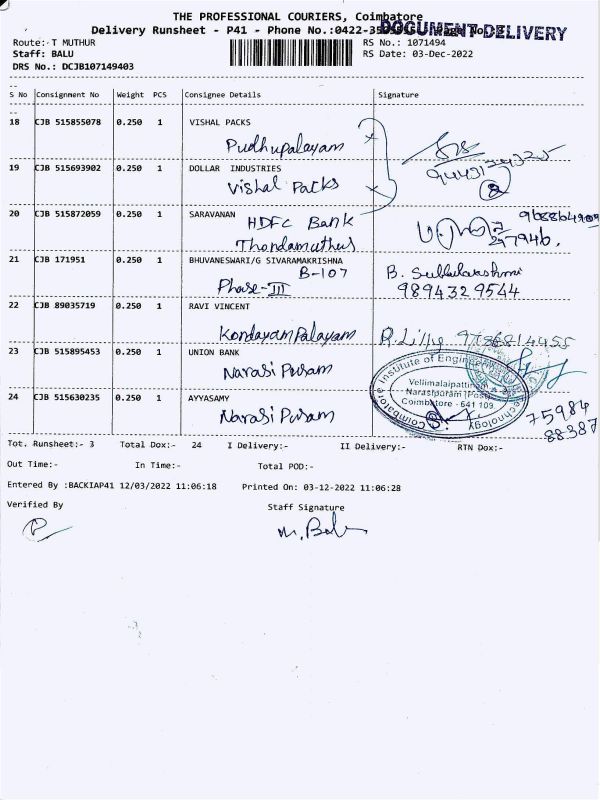 THE PROFESSIONAL COURIERS, Coimbatore
Delivery Runsheet - P41 - Phone No.:0422-
DOCUMENT DELIVERY
Route:- T MUTHUR
RS No.: 1071494
Staff: BALU
RS Date: 03-Dec-2022
DRS No.: DCJB107149403
S No Consignment No Weight PCS Consignee Details Signature
18 CJB 515855078 0.250 1 VISHAL PACKS
Pudhupalayam
19 CJB 515693902 0.250 1 DOLLAR INDUSTRIES
Vishal Packs
20 CJB 515872059 0.250 1 SARAVANAN
HDFC Bank
Thondamuthur
21 CJB 171951 0.250 1 BHUVANESWARI/G SIVARAMAKRISHNA
B-107 B. Subbulakshmi
Phase-III 9894329544
22 CJB 89035719 0.250 1 RAVI VINCENT
Kondayampalayam R.Lilly
23 CJB 515895453 0.250 1 UNION BANK
Narasi Puram
24 CJB 515630235 0.250 1 AYYASAMY
Narasi Puram
Coimbatore Institute of Engineering Technology
Vellimalaipattinam
Narasipuram (Post)
Coimbatore - 641 109.
75984
88387
Tot. Runsheet:- 3 Total Dox:- 24 I Delivery:- II Delivery:- RTN Dox:-
Out Time:- In Time:- Total POD:-
Entered By :BACKIAP41 12/03/2022 11:06:18 Printed On: 03-12-2022 11:06:28
Verified By Staff Signature